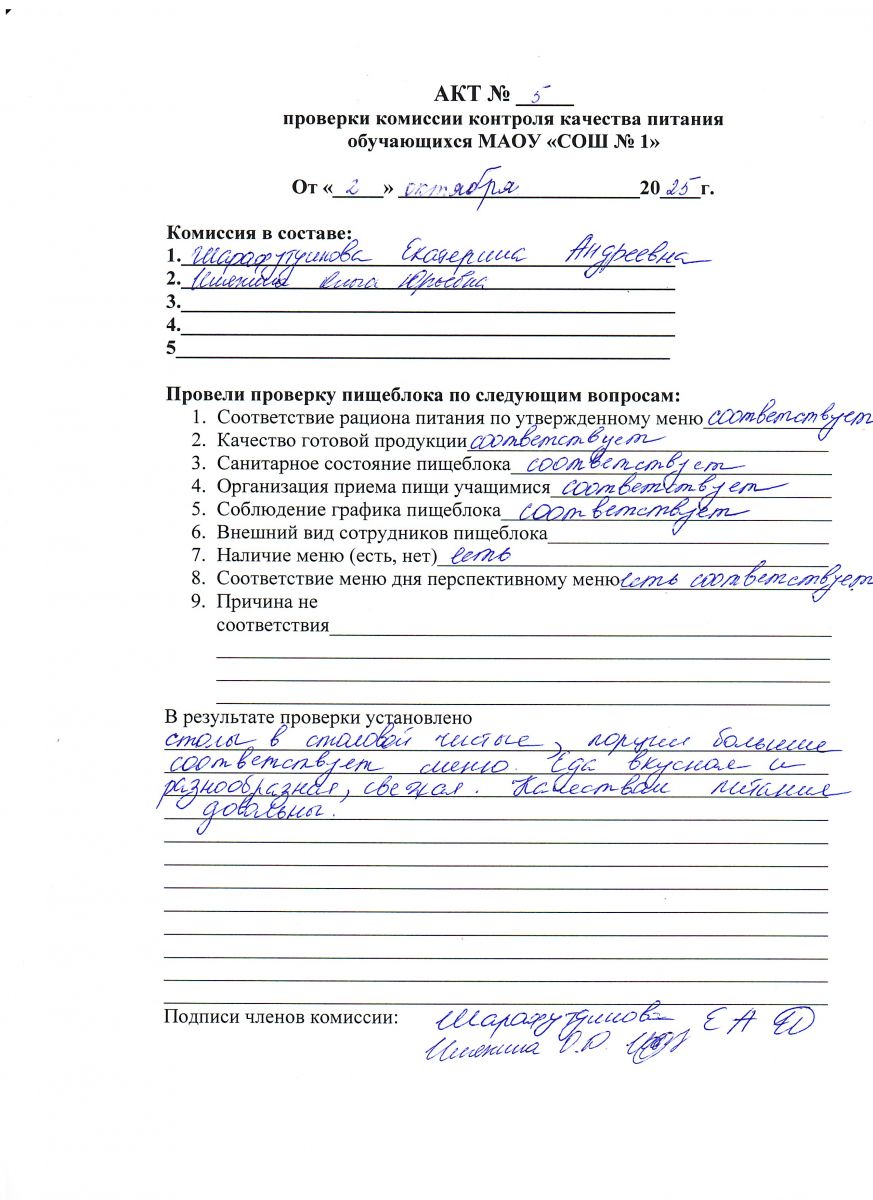 АКТ № 5
проверки комиссии контроля качества питания
обучающихся МАОУ «СОШ № 1»
От « 2 » октября 2025 г.
Комиссия в составе:
1. Шарафутдинова Екатерина Андреевна
2. Ольга Юрьевна
3.
4.
5
Провели проверку пищеблока по следующим вопросам:
1. Соответствие рациона питания по утвержденному меню соответствует
2. Качество готовой продукции соответствует
3. Санитарное состояние пищеблока соответствует
4. Организация приема пищи учащимися соответствует
5. Соблюдение графика пищеблока соответствует
6. Внешний вид сотрудников пищеблока
7. Наличие меню (есть, нет) есть
8. Соответствие меню дня перспективному меню есть соответствует
9. Причина не
соответствия
В результате проверки установлено
столы в столовой чистые, порции большие
соответствует меню. Еда вкусная и
разнообразная, свежая. Качеством питание
довольны.
Подписи членов комиссии:
Шарафутдинова Е А